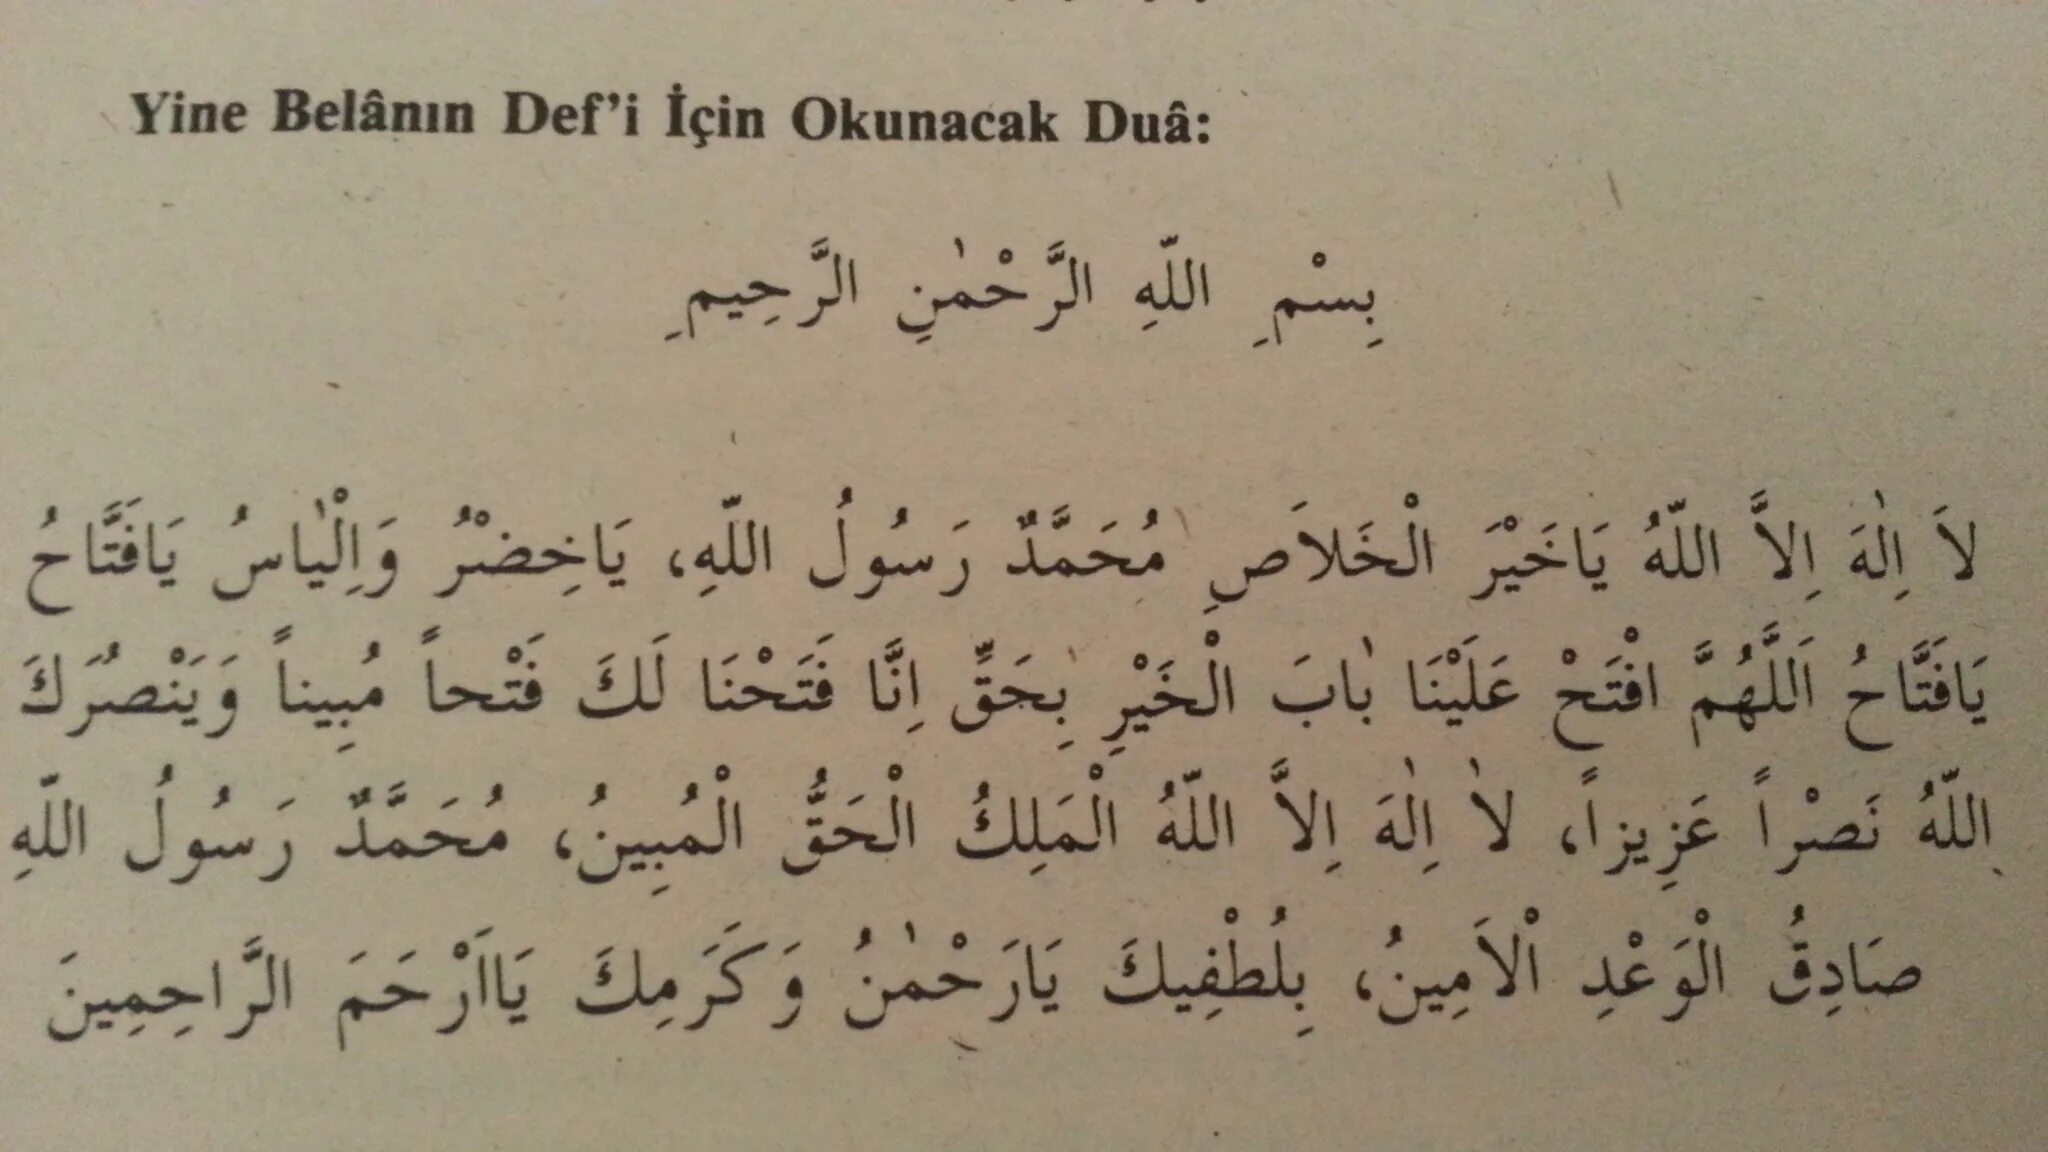 Yine Belânın Def'i İçin Okunacak Duâ:
بِسْمِ اللّهِ الرَّحْمٰنِ الرَّحِيمِ
لاَ اِلٰهَ اِلاَّ اللّهُ يَاخَيْرَ الْخَلاَصِ مُحَمَّدٌ رَسُولُ اللّهِ، يَاخِضْرُ وَاِلْيٰاسُ يَافَتَّاحُ
يَافَتَّاحُ اَللَّهُمَّ افْتَحْ عَلَيْنَا بٰابَ الْخَيْرِ بِحَقِّ اِنَّا فَتَحْنَا لَكَ فَتْحاً مُبِيناً وَيَنْصُرَكَ
اللّهُ نَصْراً عَزِيزاً، لاٰ اِلٰهَ اِلاَّ اللّهُ الْمَلِكُ الْحَقُّ الْمُبِينُ، مُحَمَّدٌ رَسُولُ اللّهِ
صَادِقُ الْوَعْدِ الْاَمِينُ، بِلُطْفِيكَ يَارَحْمٰنُ وَكَرَمِكَ يَااَرْحَمَ الرَّاحِمِينَ